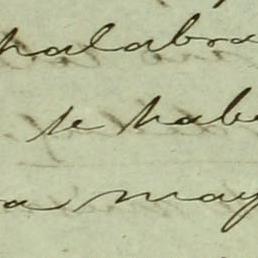 palabra
se habe
a may